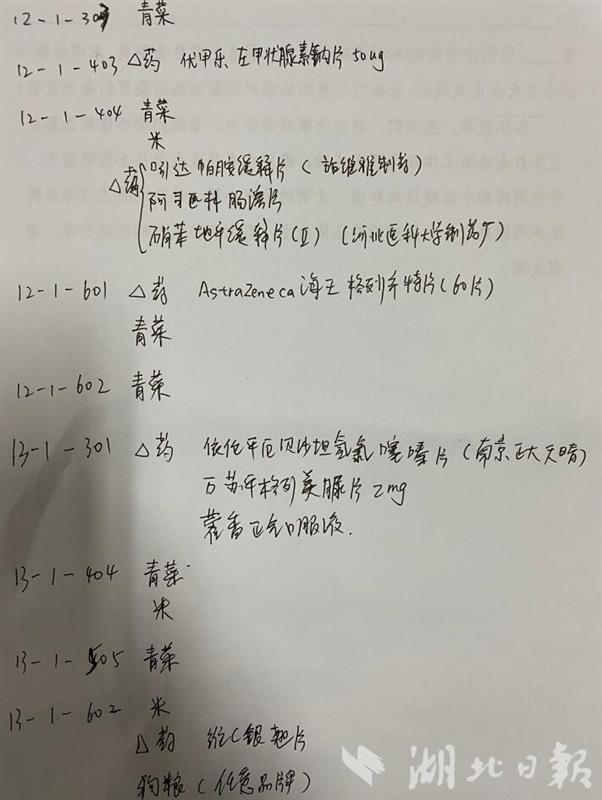 12-1-303 青菜
12-1-403 △药 优甲乐 左甲状腺素钠片 50ug
12-1-404 青菜
米
△药 吲达帕胺缓释片（施维雅制药）
阿司匹林肠溶片
硝苯地平缓释片(Ⅱ)（河北医科大学制药厂）
12-1-601 △药 AstraZeneca 海王 格列齐特片(60片)
青菜
12-1-602 青菜
13-1-301 △药 依伦平厄贝沙坦氢氯噻嗪片（南京正大天晴）
万苏平格列美脲片2mg
藿香正气口服液.
13-1-404 青菜
米
13-1-505 青菜
13-1-602 米
△药 维C银翘片
狗粮（任意品牌）
湖北日報